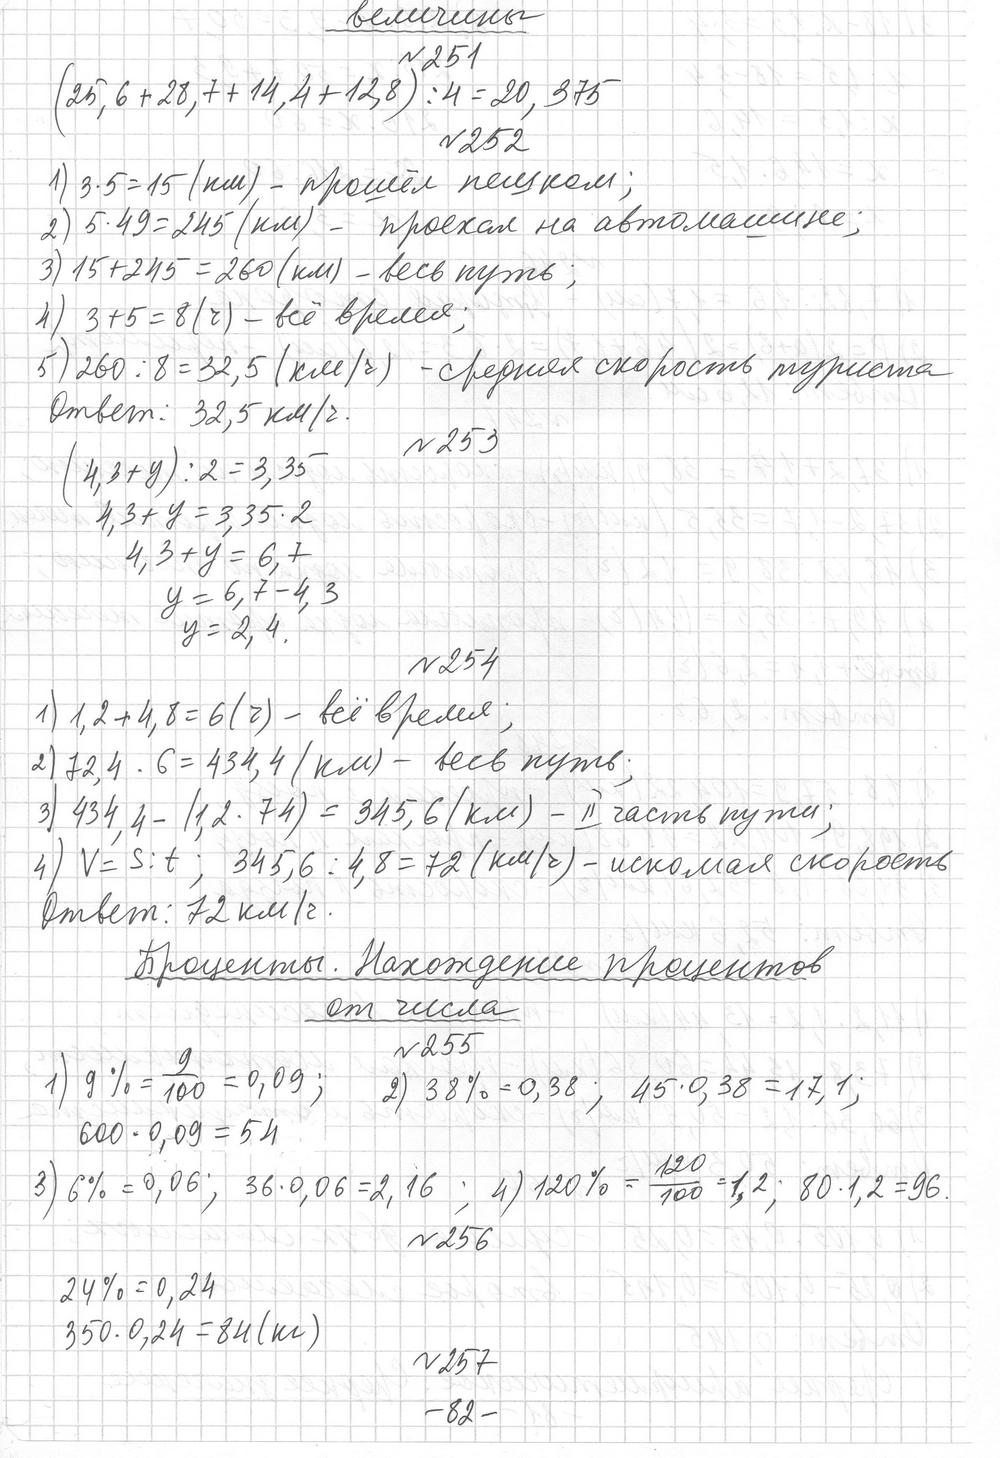 величины
№251
(25,6+28,7+14,4+12,8):4=20,375
№252
1) 3·5=15 (км) - прошёл пешком;
2) 5·49=245 (км) - проехал на автомашине;
3) 15+245=260 (км) - весь путь;
4) 3+5=8 (ч) - всё время;
5) 260:8=32,5 (км/ч) - средняя скорость туриста
Ответ: 32,5 км/ч.
№253
(4,3+y):2=3,35
4,3+y=3,35·2
4,3+y=6,7
y=6,7-4,3
y=2,4.
№254
1) 1,2+4,8=6 (ч) - всё время;
2) 72,4·6=434,4 (км) - весь путь;
3) 434,4-(1,2·74)=345,6 (км) - II часть пути;
4) V=S:t; 345,6:4,8=72 (км/ч) - искомая скорость
Ответ: 72 км/ч.
Проценты. Нахождение процентов
от числа
№255
1) 9%=9/100=0,09; 2) 38%=0,38; 45·0,38=17,1;
600·0,09=54
3) 6%=0,06; 36·0,06=2,16; 4) 120%=120/100=1,2; 80·1,2=96.
№256
24%=0,24
350·0,24=84 (кг)
№257
-82-